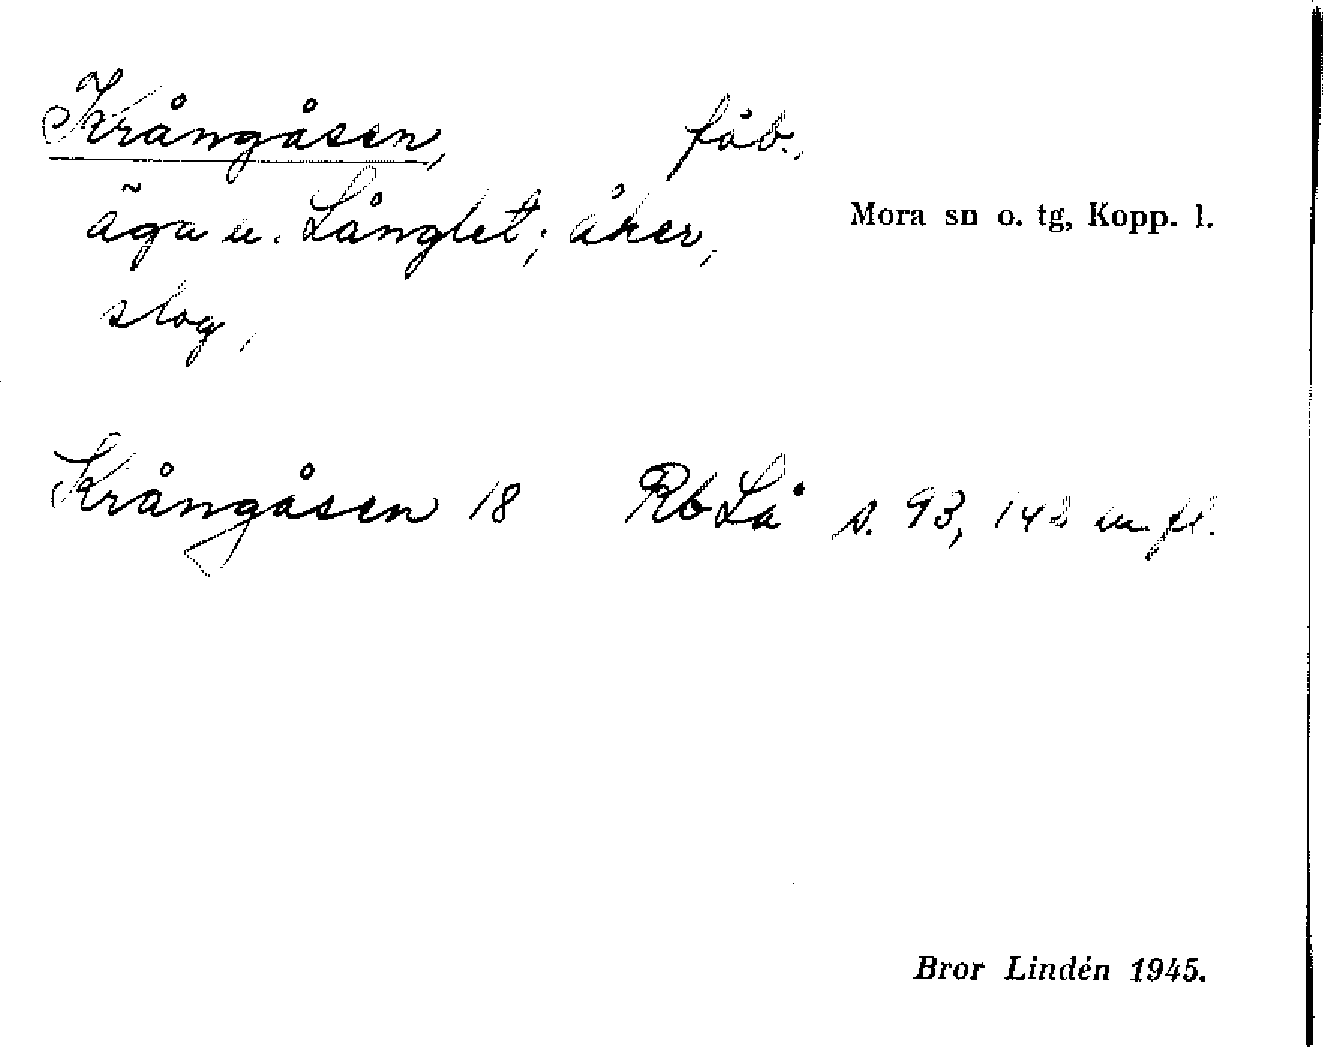 Krångåsen, fäb.,
äga u. Långlet; åker,
slog,
Mora sn o. tg, Kopp. l.
Krångåsen 18 Rb Lå s. 93, 142 m fl.
Bror Lindén 1945.